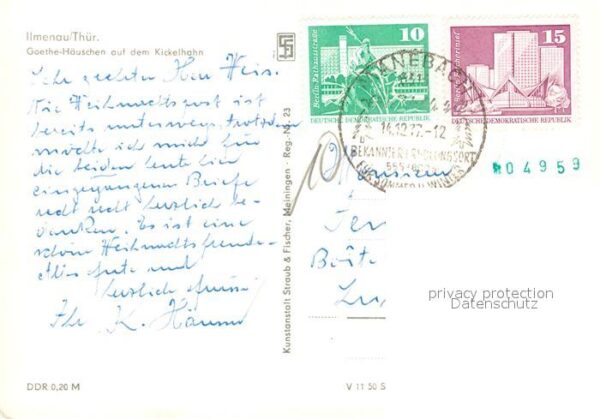 Ilmenau/Thür.
Goethe-Häuschen auf dem Kickelhahn
Sehr geehrter Herr Weis.
Die Weihnachtspost ist
bereits unterwegs, trotzdem
möchte ich mich für
die beiden heute hier
eingegangenen Briefe
recht recht herzlich be-
danken. Es ist eine
schöne Weihnachtsfreude.
Alles Gute und
herzlich
Ihr K.
DDR 0,20 M
V 11 50 S
Kunstanstalt Straub & Fischer, Meiningen · Reg.-Nr. 23
10
Berlin, Rathausstraße
DEUTSCHE DEMOKRATISCHE REPUBLIK
15
DEUTSCHE DEMOKRATISCHE REPUBLIK
MANEBACH
14.12.77-12
BEKANNTER ERHOLUNGSORT
IM SOMMER U. WINTER
04959
10
Monsieur
Boîte
privacy protection
Datenschutz